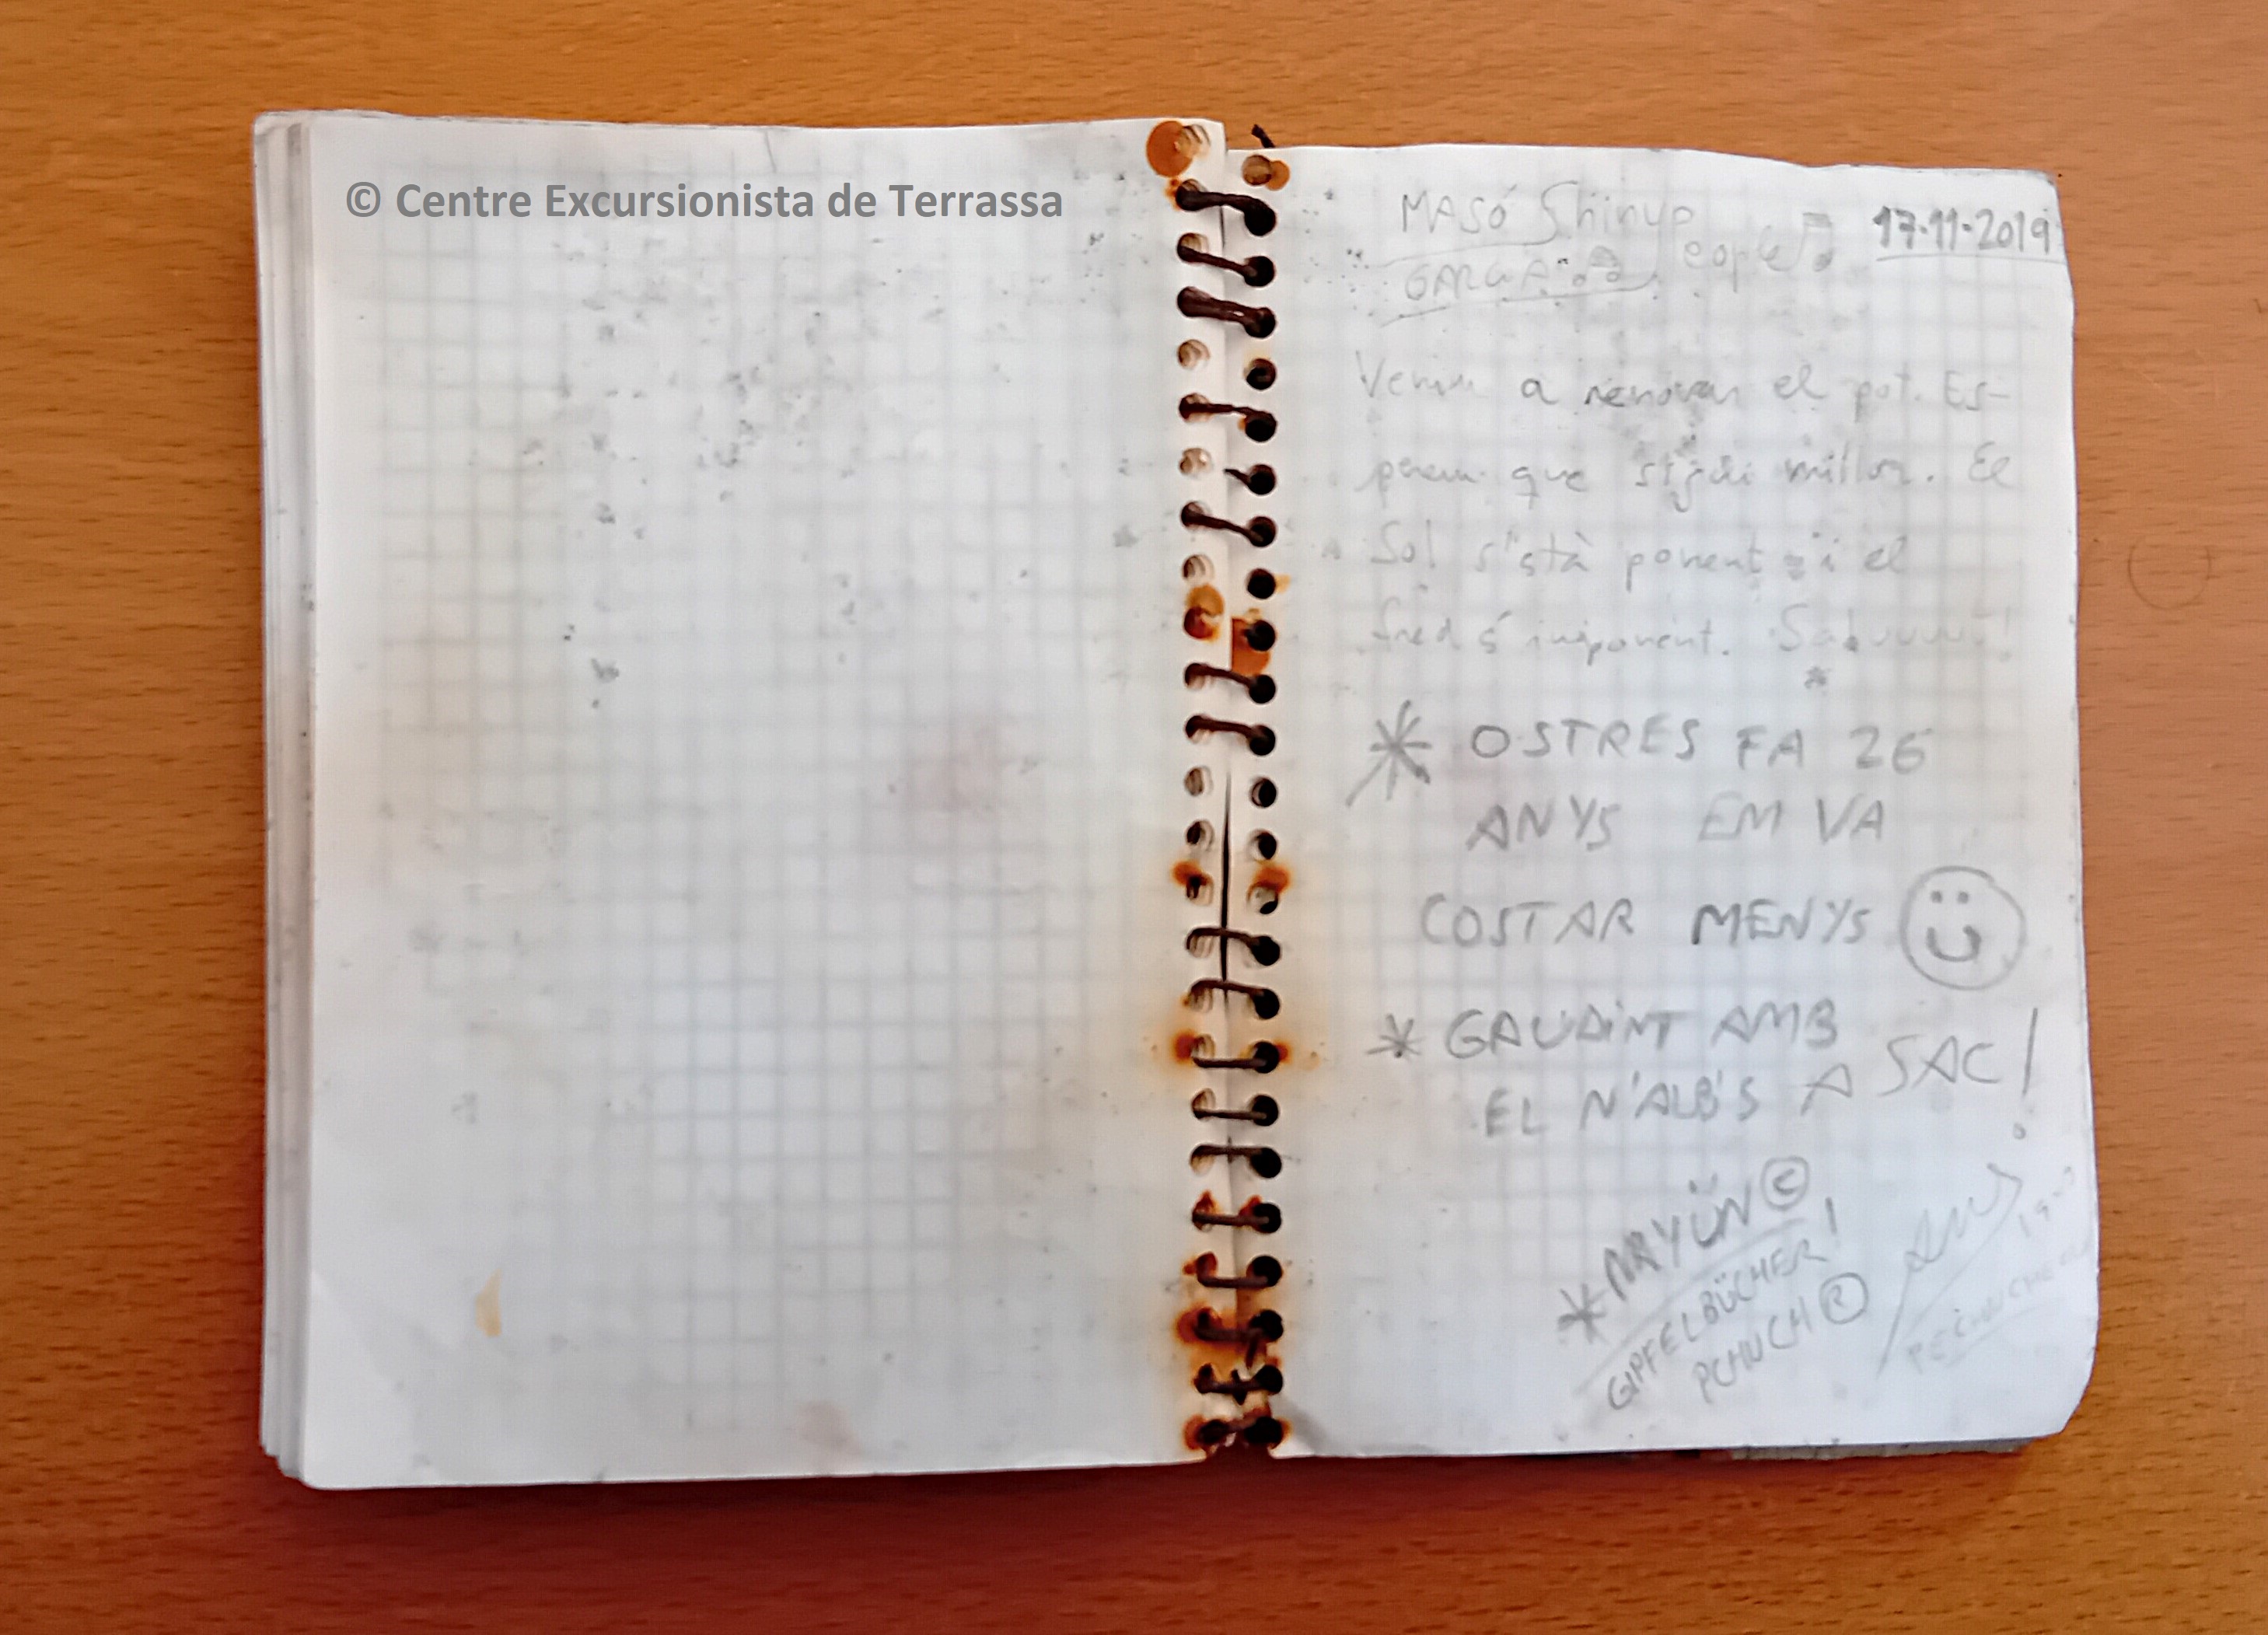 © Centre Excursionista de Terrassa
MASÓ Shinyp 17-11-2019
eople
Venim a renovar el pot. Es-
perem que sigui millor. El
Sol s'stà ponent i el
fred s' imponent. Saluuuuu!
*
* OSTRES FA 26
ANYS EM VA
COSTAR MENYS
* GAUDINT AMB
EL N'ALB'S A SAC!
* MAYÜN ©
GIPFELBÜCHER!
PCHUCH ®